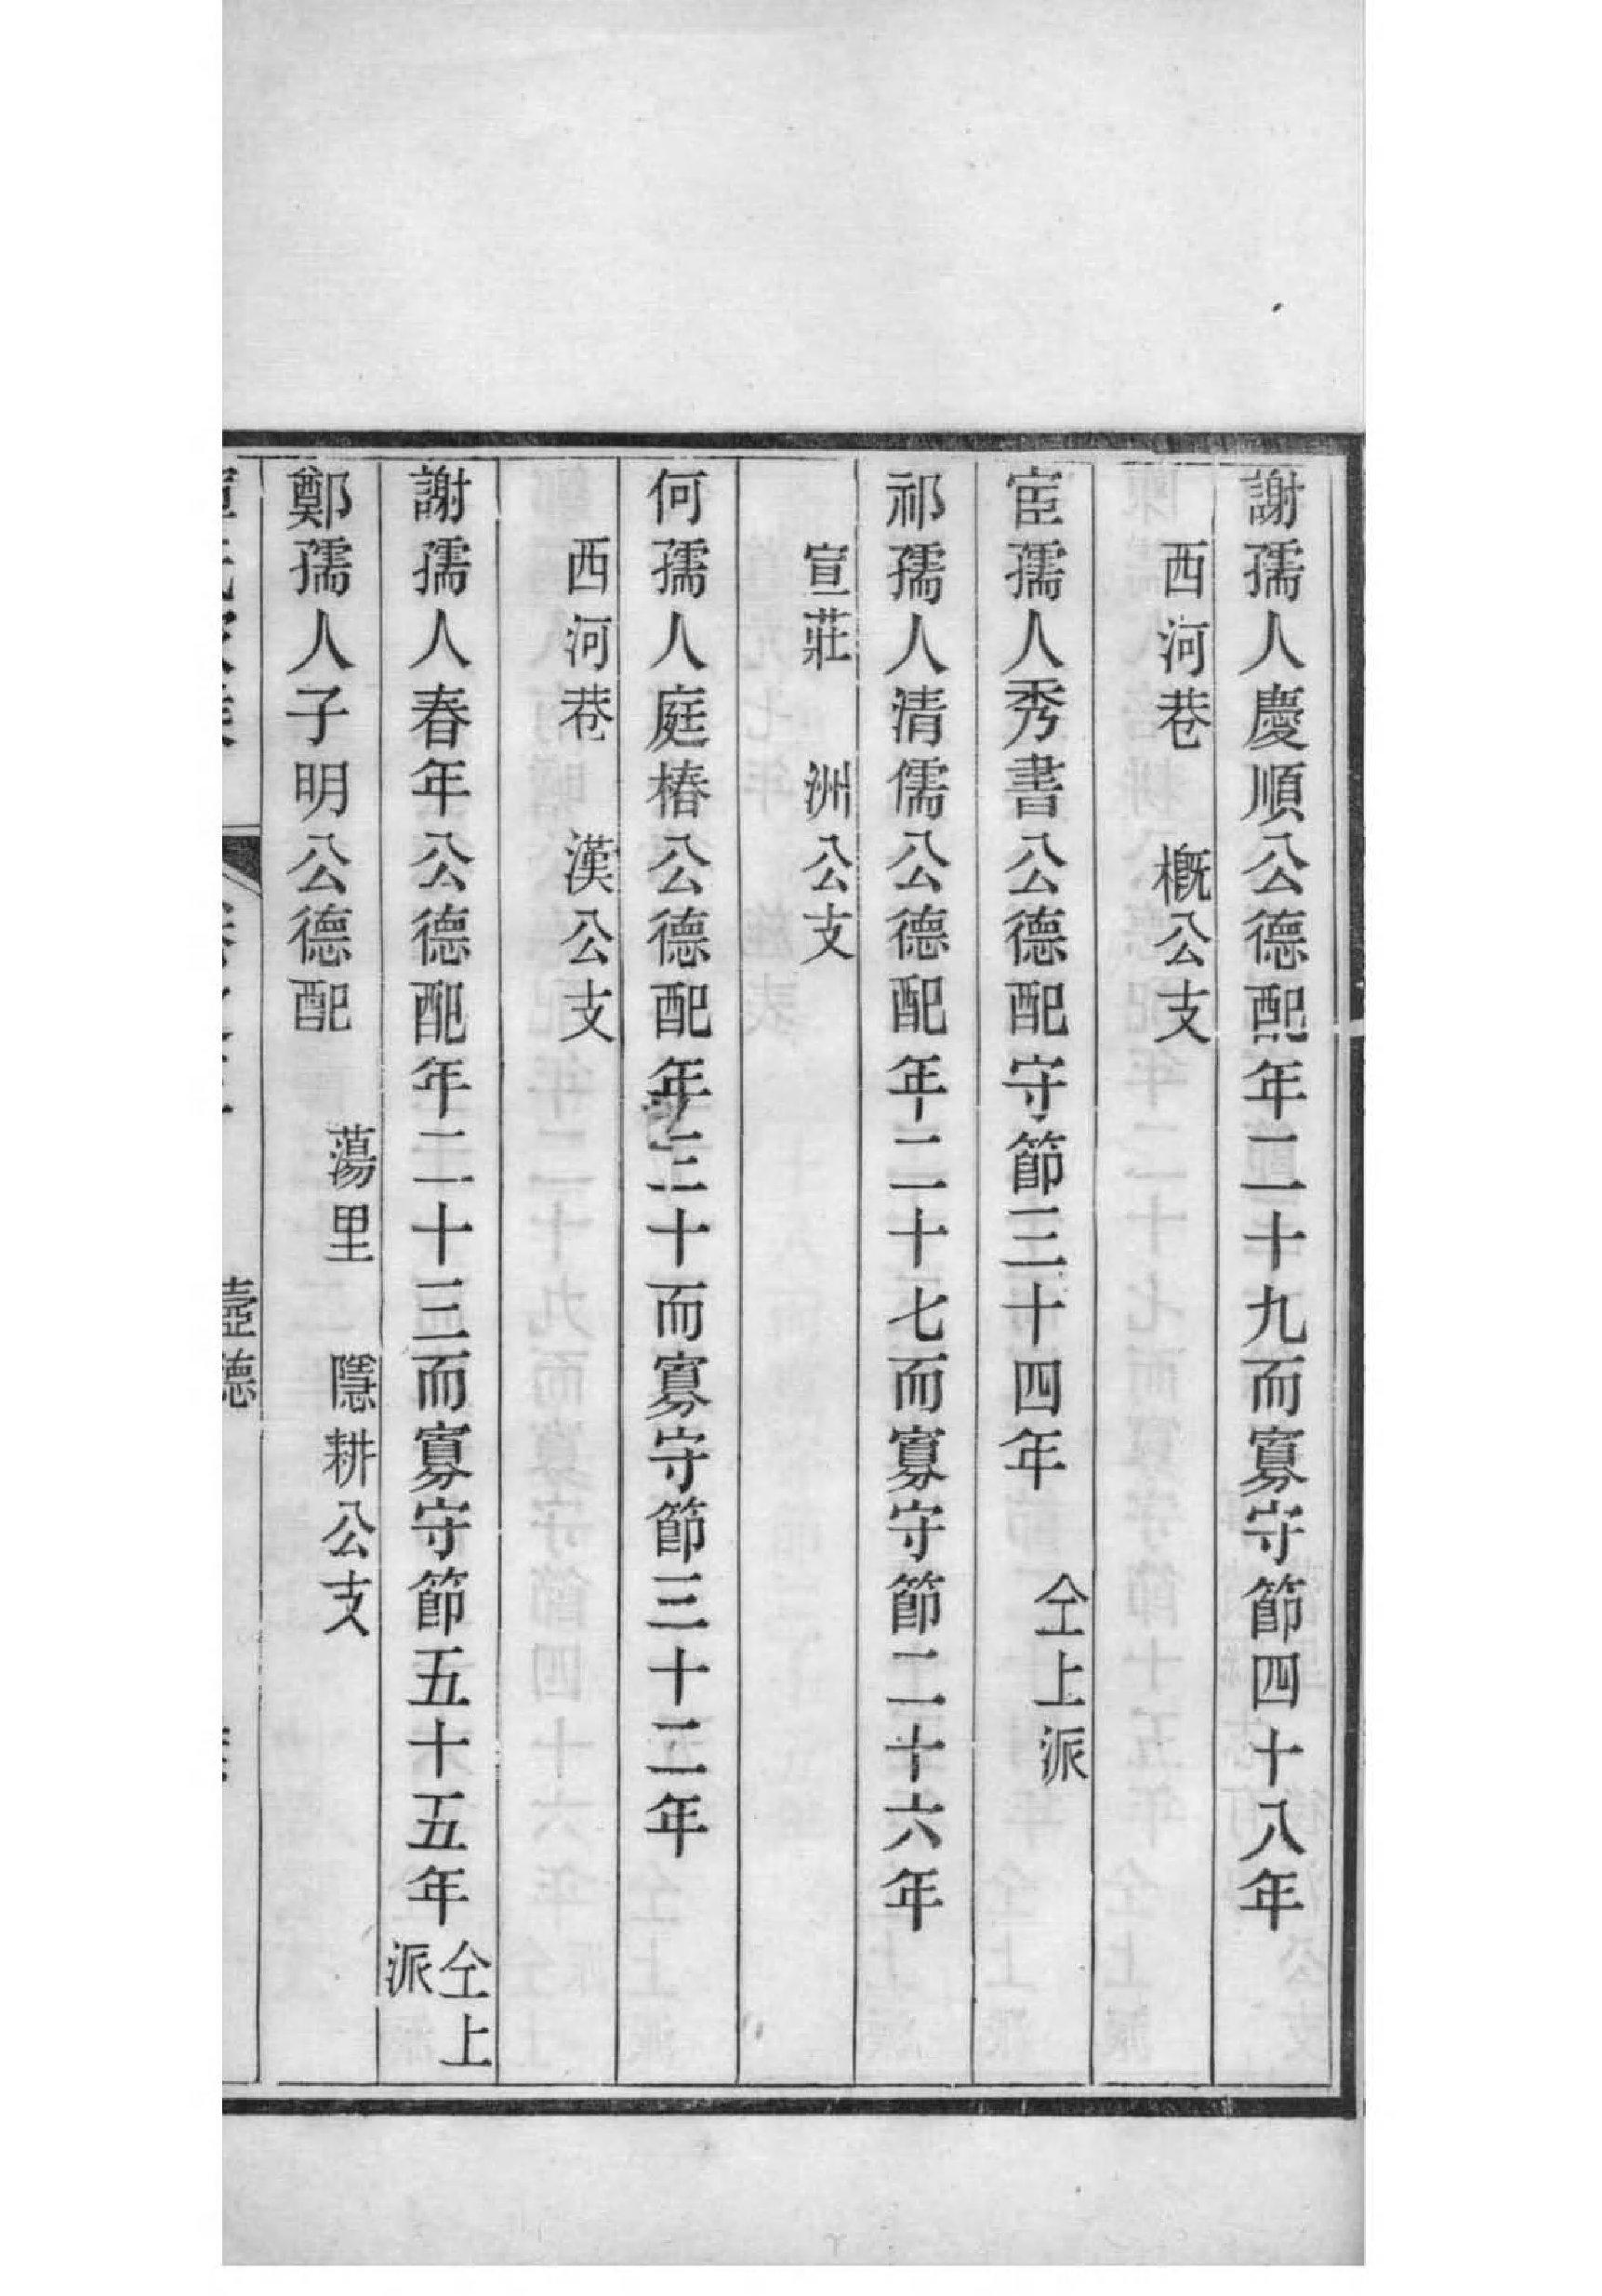 謝孺人慶順公德配年二十九而寡守節四十八年
西河巷　概公支
宦孺人秀書公德配守節三十四年　仝上派
祁孺人清儒公德配年二十七而寡守節二十六年
宣莊　洲公支
何孺人庭椿公德配年三十而寡守節三十二年
西河巷　漢公支
謝孺人春年公德配年二十三而寡守節五十五年　仝上派
鄭孺人子明公德配　蕩里　隱耕公支
壼德